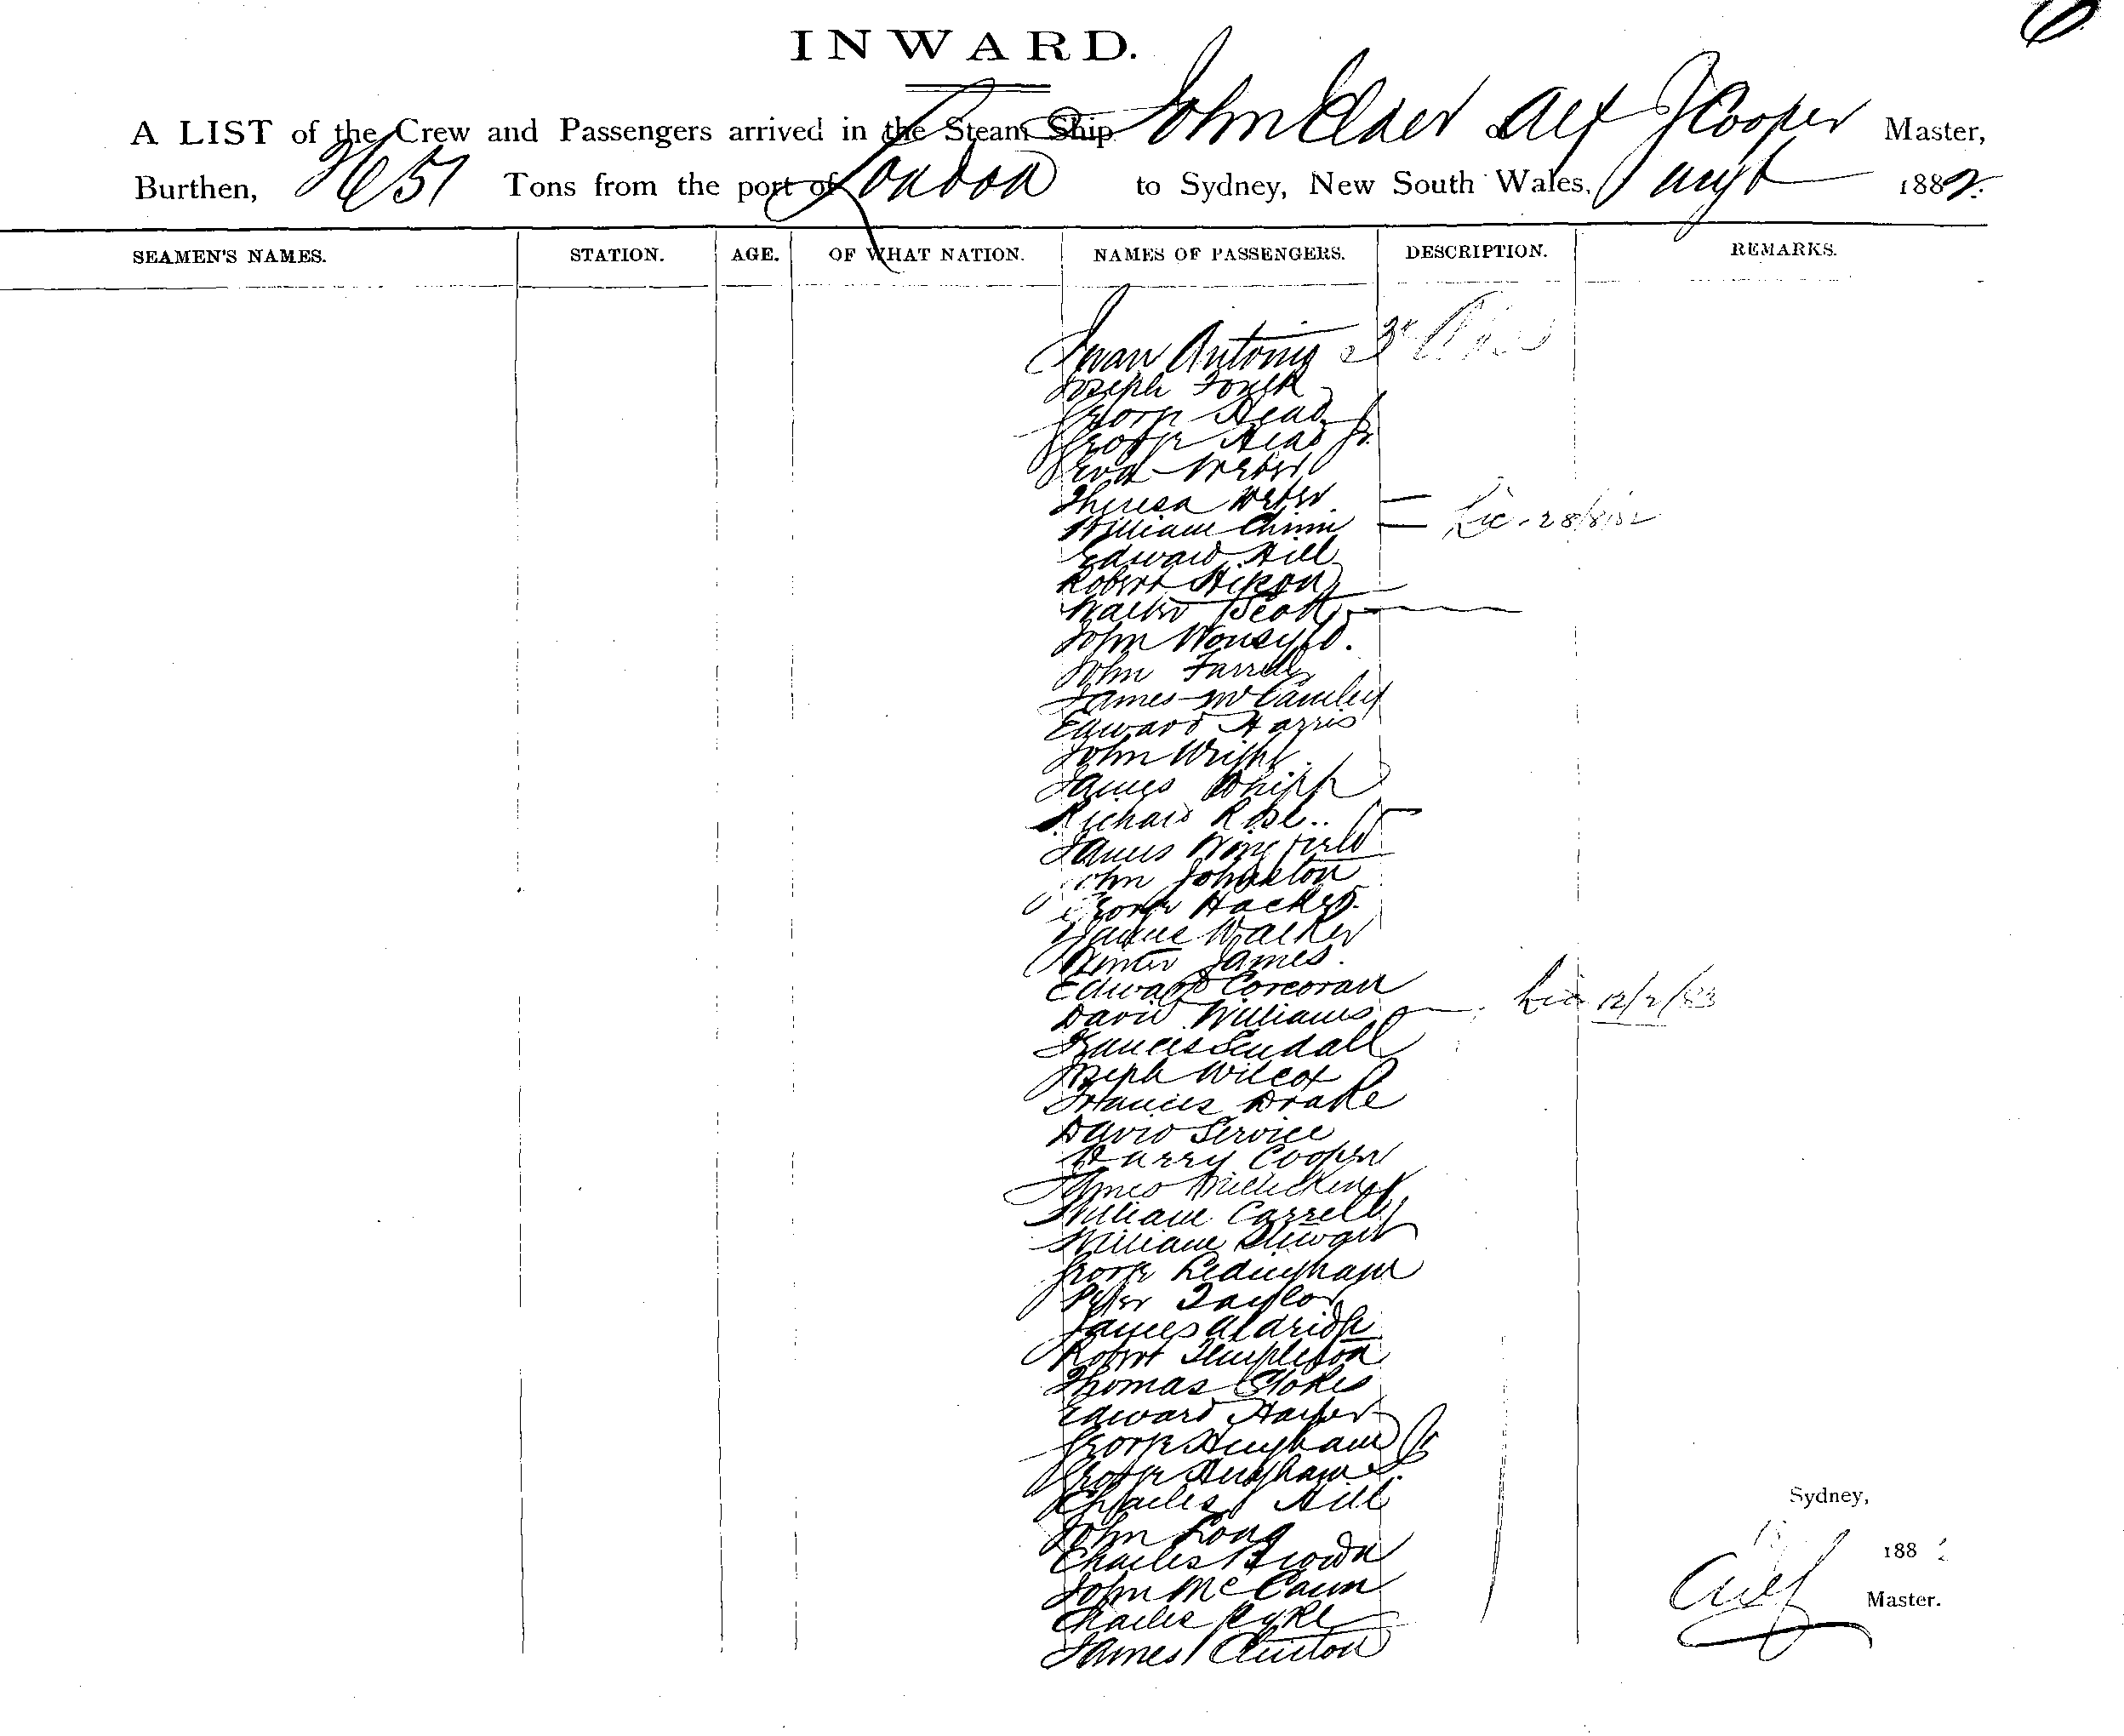 INWARD.
A LIST of the Crew and Passengers arrived in the Steam Ship John Elder of Alf J Cooper Master,
Burthen, 3651 Tons from the port of London to Sydney, New South Wales, Augt 1882.
SEAMEN'S NAMES. STATION. AGE. OF WHAT NATION. NAMES OF PASSENGERS. DESCRIPTION. REMARKS.
Antonio 3
Joseph
George Head
George Head Jr.
Eva Weber
Theresa Weber
William Lic. 28/8/82
Edward Hill
Robert Hixon
Walter Scott
John
John Farrelly
James McCamley
Edward Harris
John Wright
James Whipp
Richard Rose
James Wingfield
John Johnston
George Hacker
James Walker
James
Edward Corcoran
David Williams Lic 12/2/83
Frances Sendall
Joseph Wilcox
Frances Drake
David Service
Harry Cooper
James
William Carrelly
William Stewart
George Ledingham
Peter Taylor
James Aldridge
Robert Templeton
Thomas Stokes
Edward Harper
George Hingham
George Hingham
Charles Hill
Sydney,
John Long
Charles Brown
188
John McCann
Alf Master.
Charles Pyke
James Clinton